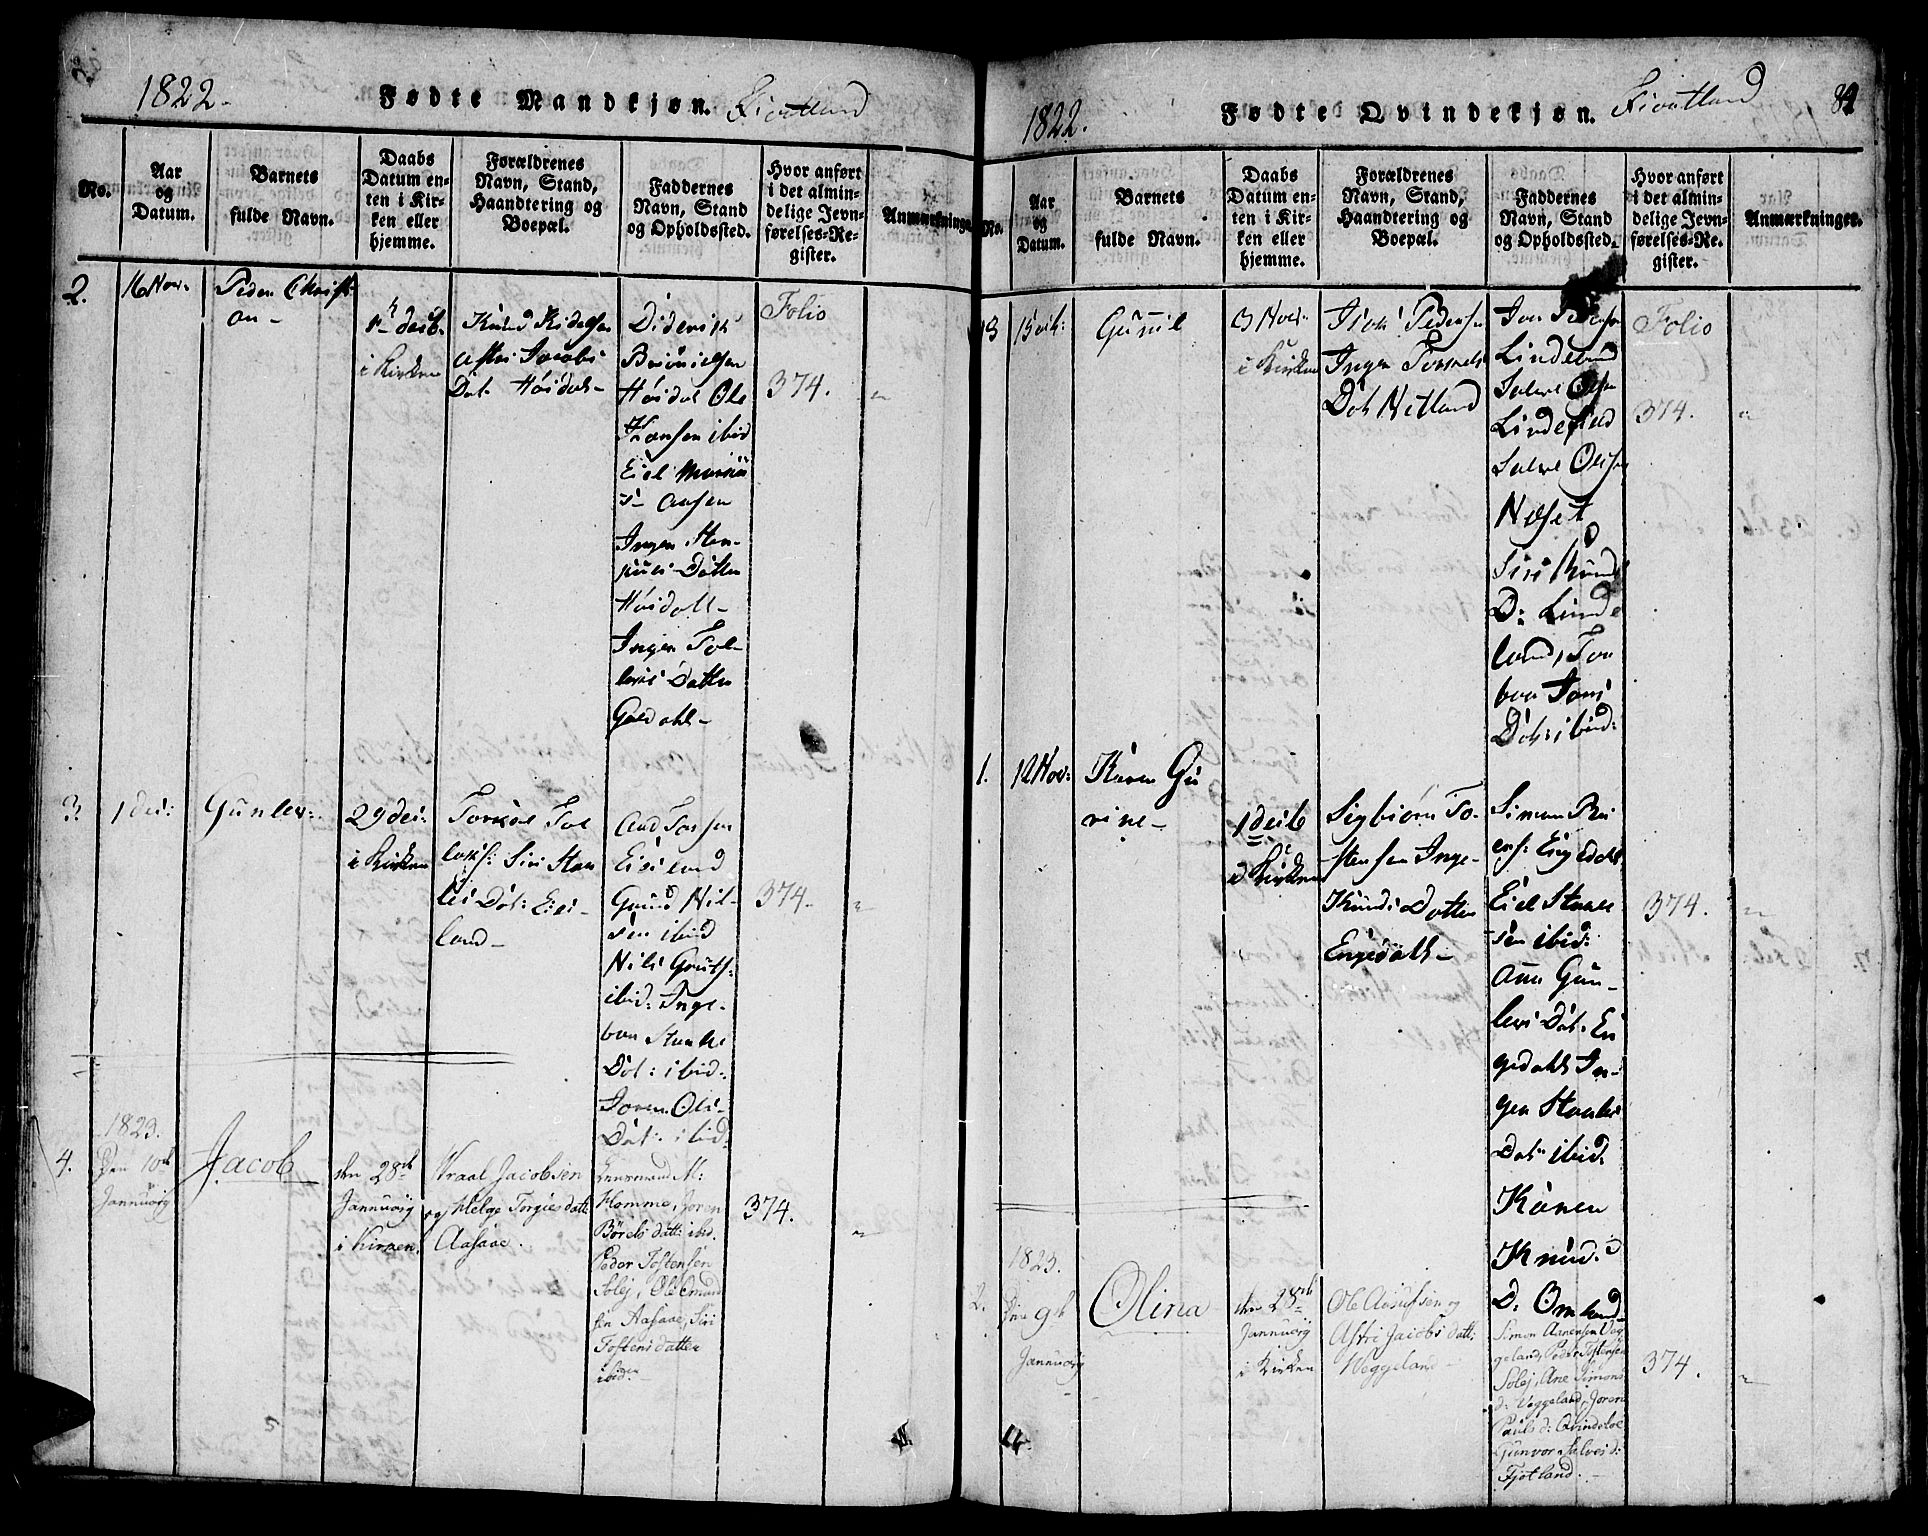 1822.
Fødte Mandkjøn.
Fiotland
No.
Aar
og
Datum.
Barnets
fulde Navn.
Daabs
Datum en-
ten i Kir-
ken eller
hjemme.
Forældrenes
Navn, Stand,
Haandtering og
Boepæl.
Faddernes
Navn, Stand
og Opholdssted.
Hvor anført
i det almin-
delige Jevn-
førelses-Re-
gister.
Anmærkninger
2.
16 Nov.
Peder Christi
an-
1 deib.
i Kirken
Astri Jacobs
Dot. Høidal-
Diderik
Høidal Ole
Hansen ibid
Eiel
Aasen
Ingen Sten-
Datter
Høidall-
Ingen Tol-
levs Datter
Folio
374.
3.
1 dei:
Gunlev:
29 dei:
i Kirken
Torkel Tol
lefs: Siri Staa
lei Dot: Eies-
land-
And Tossen
Eisiland
Gund Nil-
sen ibid
Nils
ibid: Inge-
bor Staale
Dot: ibid:
Joren Ols-
Dot: ibid:
374.
4.
1823.
Den 10de
Jannuarij
Jacob
den 28de
Jannuarij
i Kirken.
Vraal Jacobsen
og Helge Torgiesdatt:
Aasaae.
Homme, Joren
Børels datt: ibid.
Peder Tostensen
Solej, Ole Omund
sen Aasaae, Siri
Tostensdatter
ibid-
374.
1822.
Fødte Qvindekjøn.
Fiotland
84
No.
Aar
og
Datum.
Barnets
fulde Navn.
Daabs
Datum en-
ten i Kir-
ken eller
hjemme.
Forældrenes
Navn, Stand,
Haandtering og
Boepæl.
Faddernes
Navn, Stand
og Opholdssted.
Hvor anført
i det almin-
delige Jevn-
førelses-Re-
gister.
Anmærkninger.
13
Gunil
3 Nov.
i Kirken
Isak Pedersen
Ingen Tomes
Dot Netland
Jon Pedersen
Lindeland
Salve Olsen
Lindeland
Salve Olsen
Neset
Siri Knud
D: Linde
land, Tor
bor Jons
Dot: ibid:
Folio
374.
1.
12 Nov:
Karen Gu
rine-
1 deib
i Kirken
Sigbiørn To-
stensen Inge-
Knuds Datter
Engedahl-
Simon Rei
ers: Engedahl
Eiel Staale
sen ibid:
Ann Gun-
levs Dot: En
gedahl In-
gen Staales
Dot: ibid.
Karen
Knud:
D. Omland
374.
2.
1823.
Den 9de
Jannuarij
Olina
den 28de
Jannuarij
i Kirken
Ole Aasulfsen og
Astri Jacobs datt:
Veggeland-
Simon Aanensen Veg
geland, Peder Tostensen
Solej, Ane Simons
d: Veggeland, Joren
Pauls d: Qvindelae
Gunvor Salves d:
Fjotland.-
374.